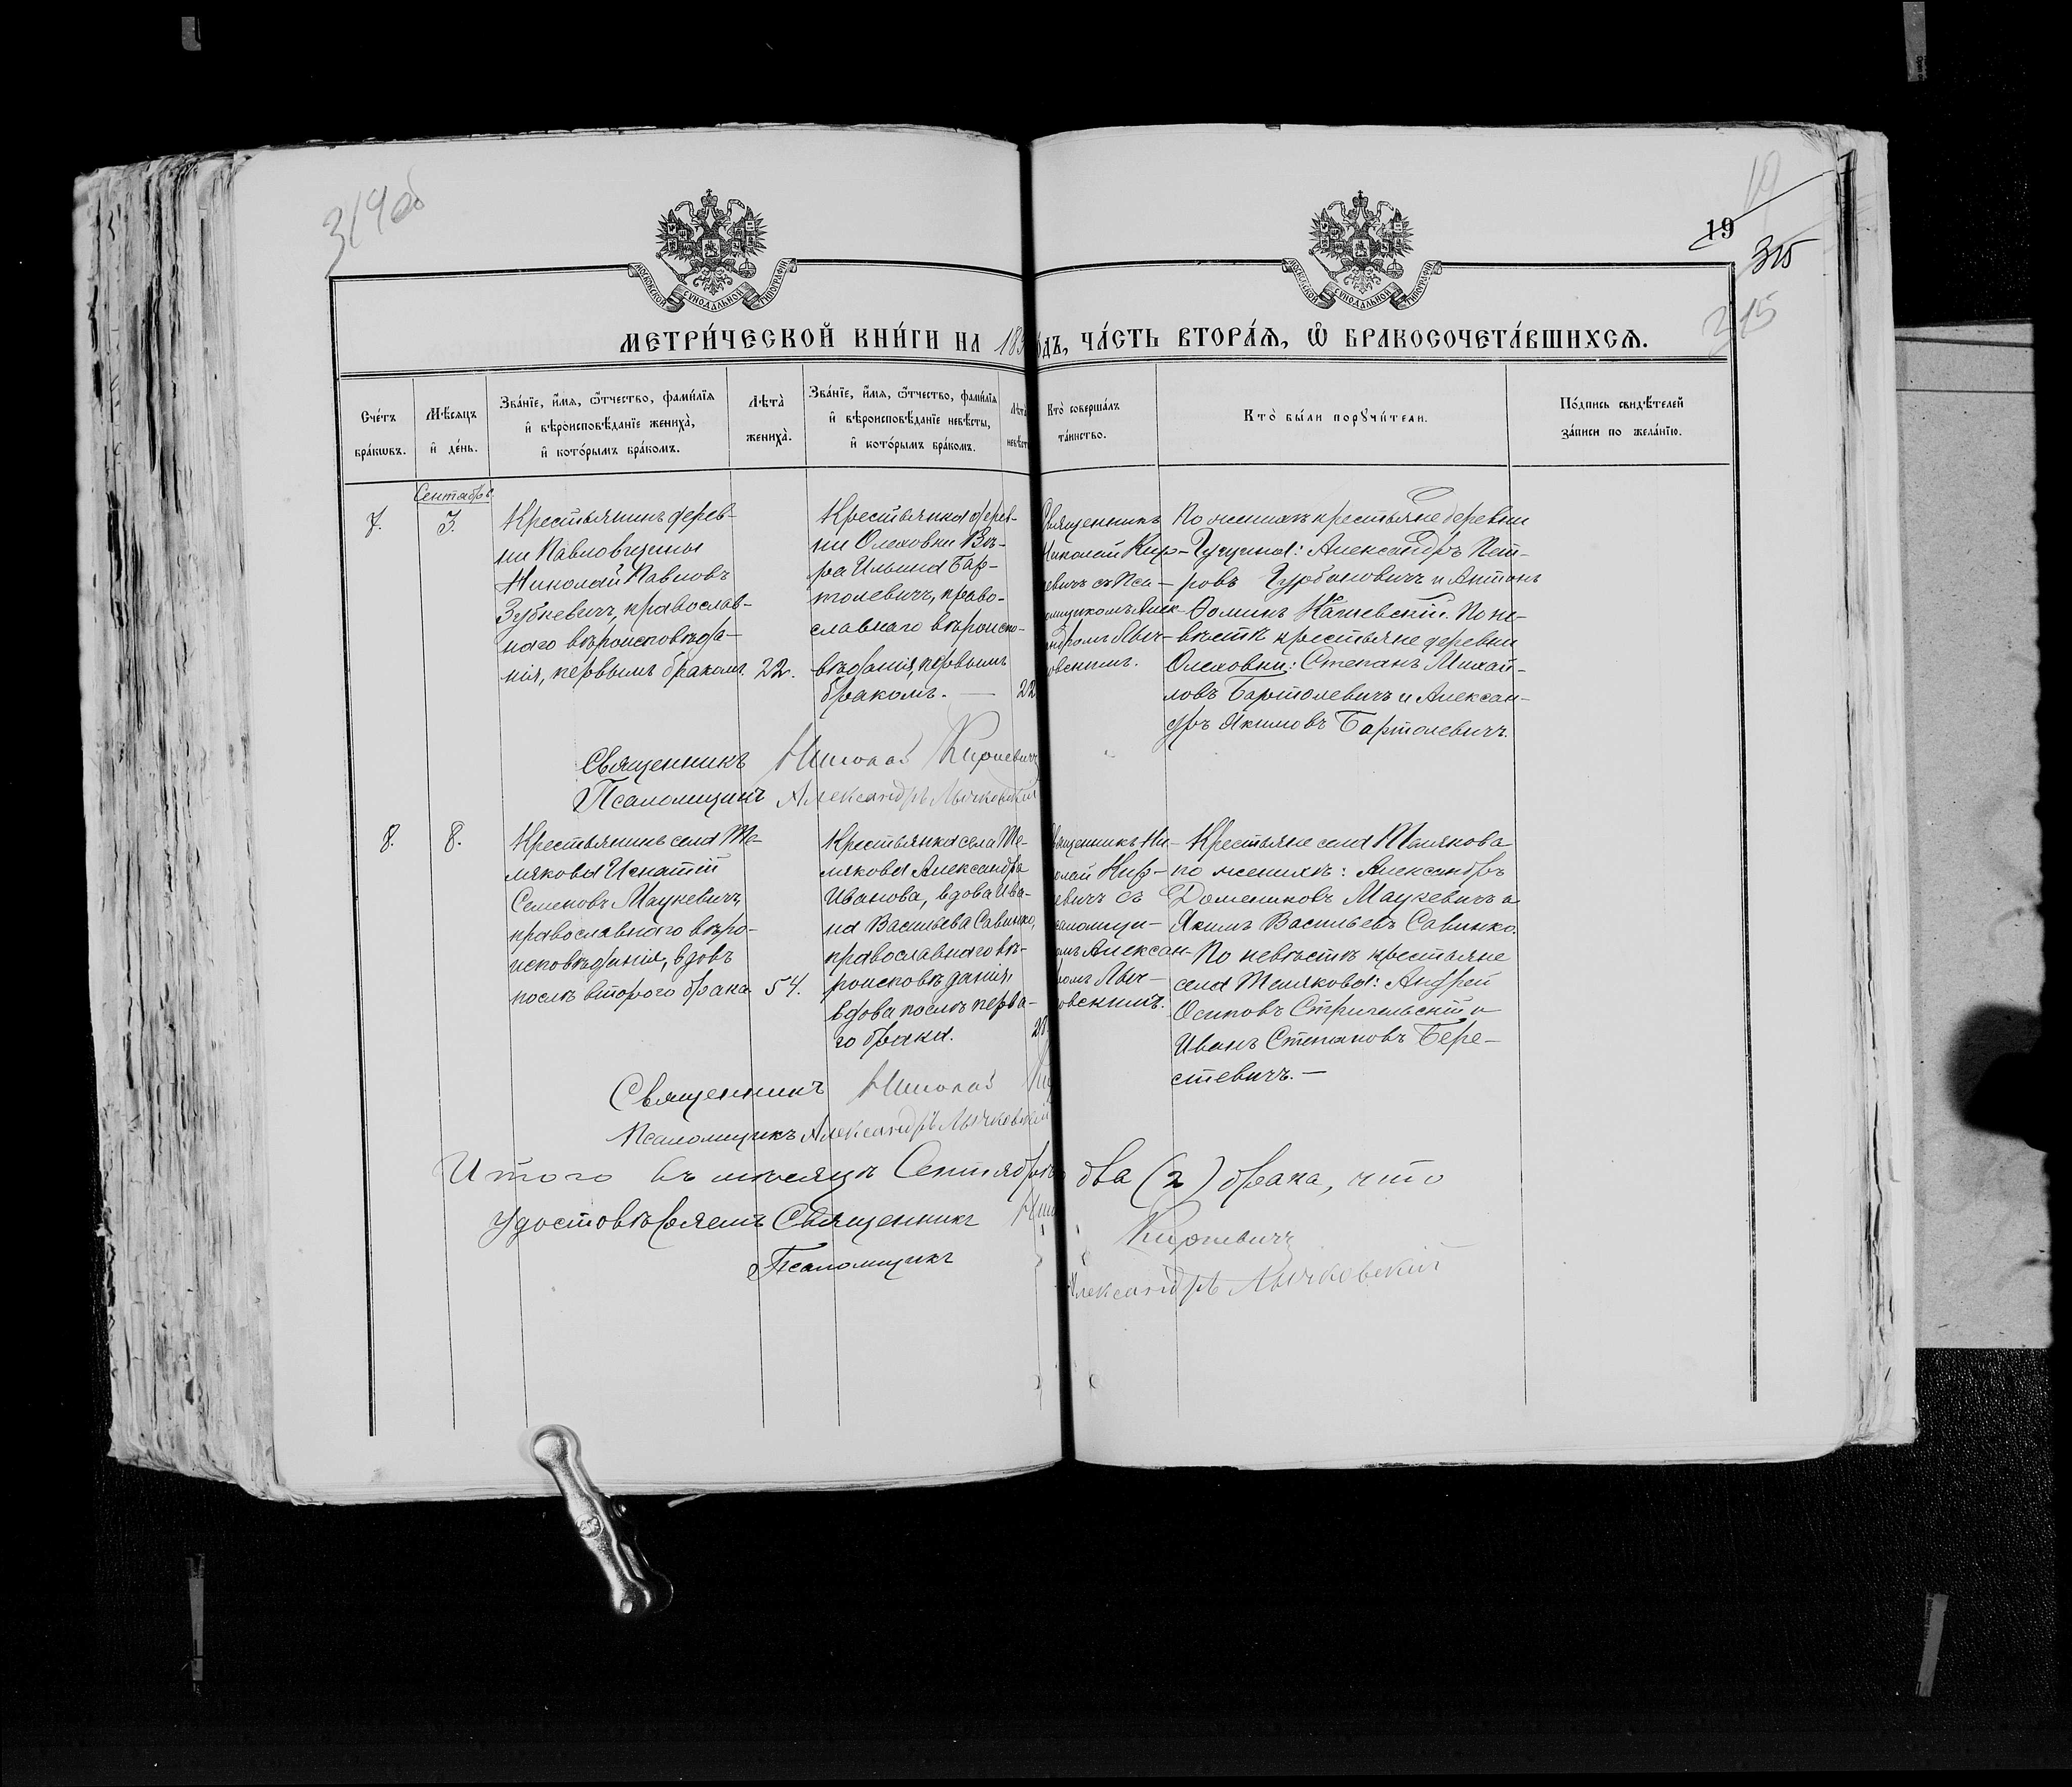 314 об
19
19
315
315
МОСКОВСКОЙ СУНОДАЛЬНОЙ ТИПОГРАФІИ
МОСКОВСКОЙ СУНОДАЛЬНОЙ ТИПОГРАФІИ
МЕТРИ́ЧЕСКОЙ КНИ́ГИ НА 189 ДЪ, ЧА́СТЬ ВТОРА́Ѧ, Ѽ БРАКОСОЧЕТА́ВШИХСѦ.
Сче́тъ бра́кωвъ.
Мѣ́сяцъ и҆ де́нь.
Зва́нїе, и҆́мѧ, ѻ҆́тчество, фами́лїѧ и҆ вѣроисповѣ́данїе жениха̀, и҆ кото́рымъ бра́комъ.
Лѣта̀ жениха̀.
Зва́нїе, и҆́мѧ, ѻ҆́тчество, фами́лїѧ и҆ вѣроисповѣ́данїе невѣ́сты, и҆ кото́рымъ бра́комъ.
Лѣта невѣст
Кто̀ соверша́лъ та́инство.
Кто̀ бы́ли порꙋчи́тели.
По́дпись свидѣ́телей за́писи по жела́нїю.
Сентябрь
7.
3.
Крестьянинъ дерев-
ни Павловщины
Николай Павловъ
Зубкевичъ, православ-
наго вѣроисповѣда-
нія, первымъ бракомъ.
22.
Крестьянка дерев-
ни Олеховки Вѣ-
ра Ильина Бар-
толевичъ, право-
славнаго вѣроиспо-
вѣданія, первымъ
бракомъ. —
22
Священникъ
Николай Кир-
евичъ съ Пса-
омщикомъ Алек-
ндромъ Лыч-
овскимъ.
По женихѣ крестьяне деревни
Гущина: Александръ Пет-
ровъ Гурбановичъ и Антонъ
Фоминъ Качиевскій. По не-
вѣстѣ крестьяне деревни
Олеховки: Степанъ Михай-
ловъ Бартолевичъ и Алексан-
дръ Якимовъ Бартолевичъ.
Священникъ Николай Киркевичъ
Псаломщикъ Александръ Лычковскій
8.
8.
Крестьянинъ села Те-
лякова Игнатій
Семеновъ Мацкевичъ,
православнаго вѣро-
исповѣданія, вдовъ
послѣ второго брака
54.
Крестьянка села Те-
лякова Александра
Иванова, вдова Ива-
на Васильева Савинко,
православнаго вѣ-
роисповѣданія,
вдова послѣ перва-
го брака.
28
вященникъ Ни-
олай Кир-
евичъ съ
саломщи-
омъ Алексан-
ромъ Лыч-
овскимъ.
Крестьяне села Телякова
по женихѣ: Александръ
Домениковъ Мацкевичъ и
Якимъ Васильевъ Савинко.
По невѣстѣ крестьяне
села Телякова: Андрей
Осиповъ Стригельскій и
Иванъ Степановъ Бере-
стевичъ. —
Священникъ Николай Ки
Псаломщикъ Александръ Лычковскій
Итого въ мѣсяцѣ Сентябрѣ два (2) брака, что
удостовѣряемъ Священникъ Ни Киркевичъ
Псаломщикъ Александръ Лычковскій